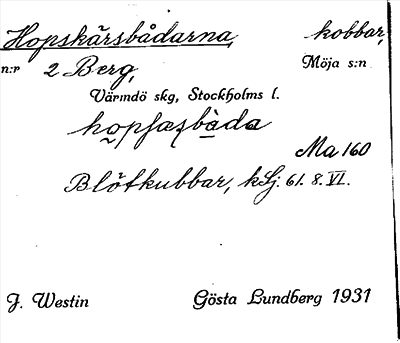 Hopskärsbådarna, kobbar,
n:r 2 Berg, Möja s:n
Värmdö skg, Stockholms l.
Ma 160
Blötkubbar, kSj. 61. 8. VI.
J. Westin Gösta Lundberg 1931